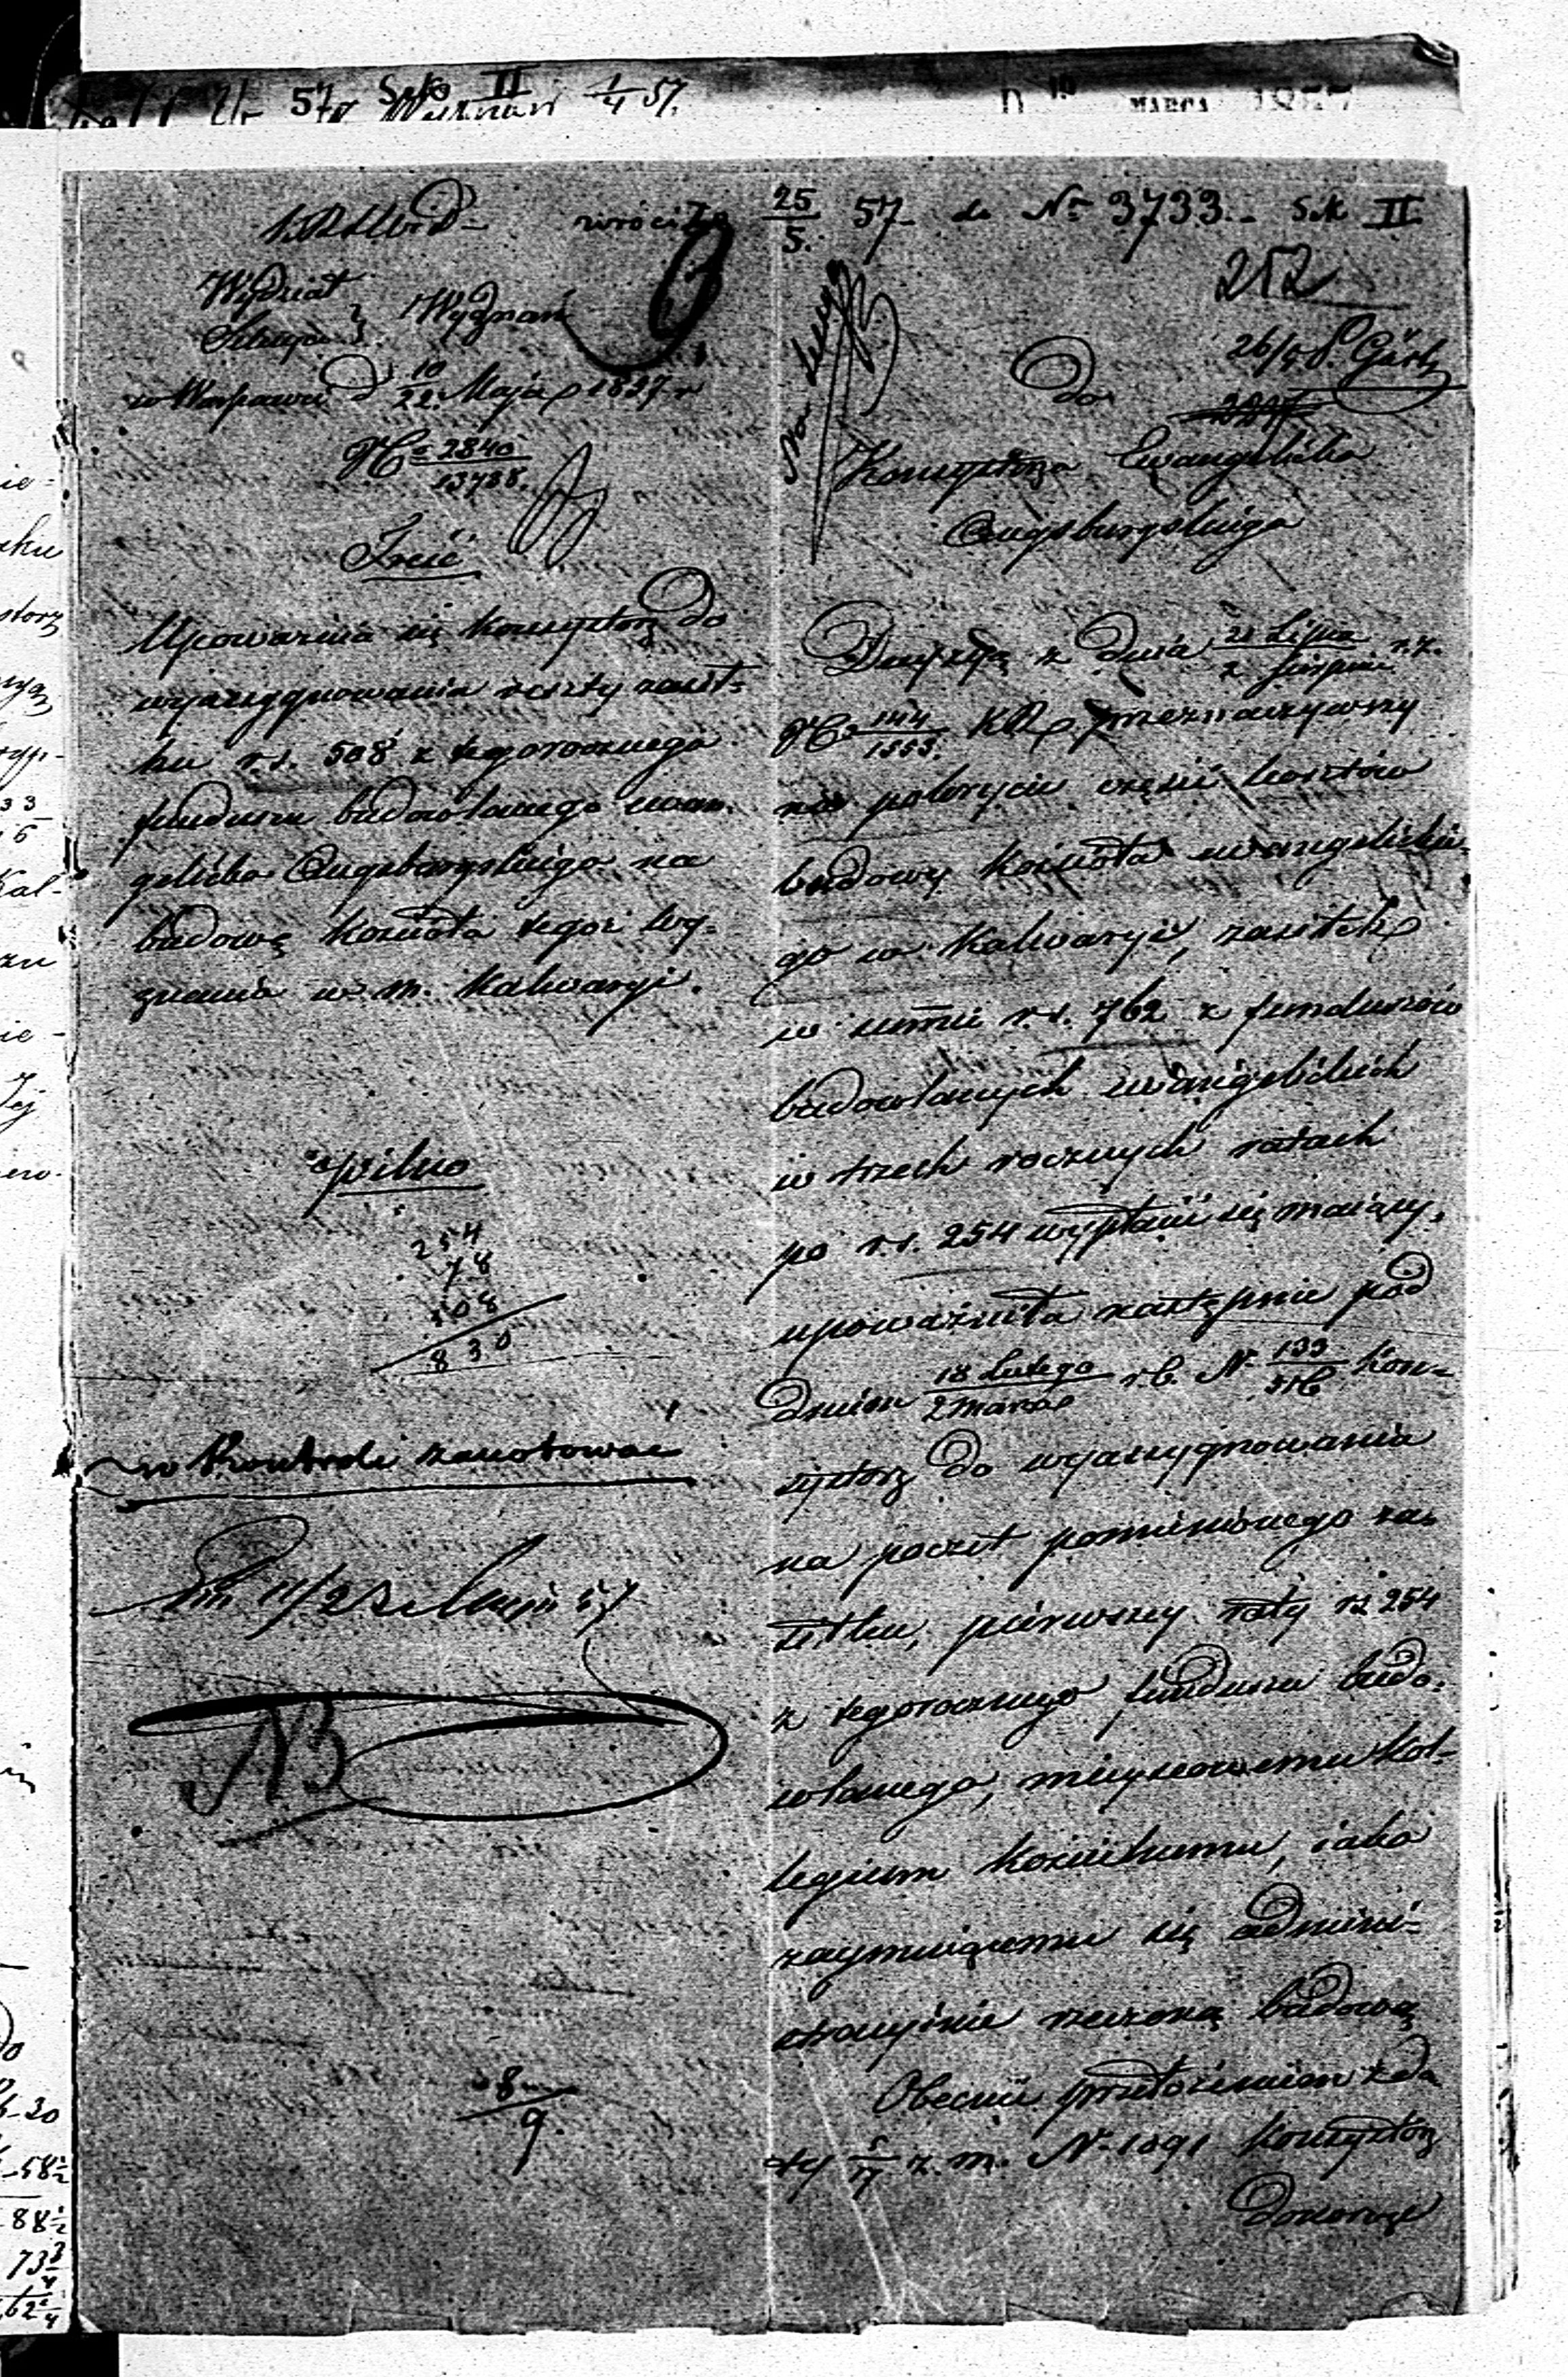 57 Sek II
1/4 57.
MARCA
wróciło 25/5. 57 do Nr 3733. Sek II.
252
Wydział
Wyznań
w Warszawie d. 10/22 Maja 1857 r
N 2840/13788.
Treść
Upoważnia się Konsystorz do
wyassygnowania reszty zasił-
ku r.s. 508 z tegorocznego
funduszu budowlanego ewan-
gelicko Augsburgskiego na
budowę kościoła tegoż wy-
znania w m. Kalwaryi.
pilno
254
78
508
830
w Kontroli zanotować
NB
8
9.
26/5
Do
Konsystorza Ewangelicko
Augsburgskiego
Decyzyą z dnia 21 Lipca/2 Sierpnia r.z.
N 144/1553. KR. przeznaczywszy
na pokrycie części kosztów
budowy kościoła ewangelickie-
go w Kalwaryi, zasiłek
w summie r.s. 762 z funduszów
budowlanych ewangelickich
w trzech rocznych ratach
po r.s. 254 wypłacić się maiący,
upoważniła następnie pod
dniem 18 Lutego/2 Marca r.b. N. 133/516 Kon-
systorz do wyassygnowania
na poczet pomienionego za-
siłku, pierwszey raty rs 254
z tegorocznego funduszu budo-
wlanego, mieyscowemu Kol-
legium Kościelnemu, iako
zaymuiącemu się admini-
stracyinie rzeczoną budową
Obecnie przełożeniem z da-
ty 5/17 z. m. N. 1091 Konsystorz
donosząc